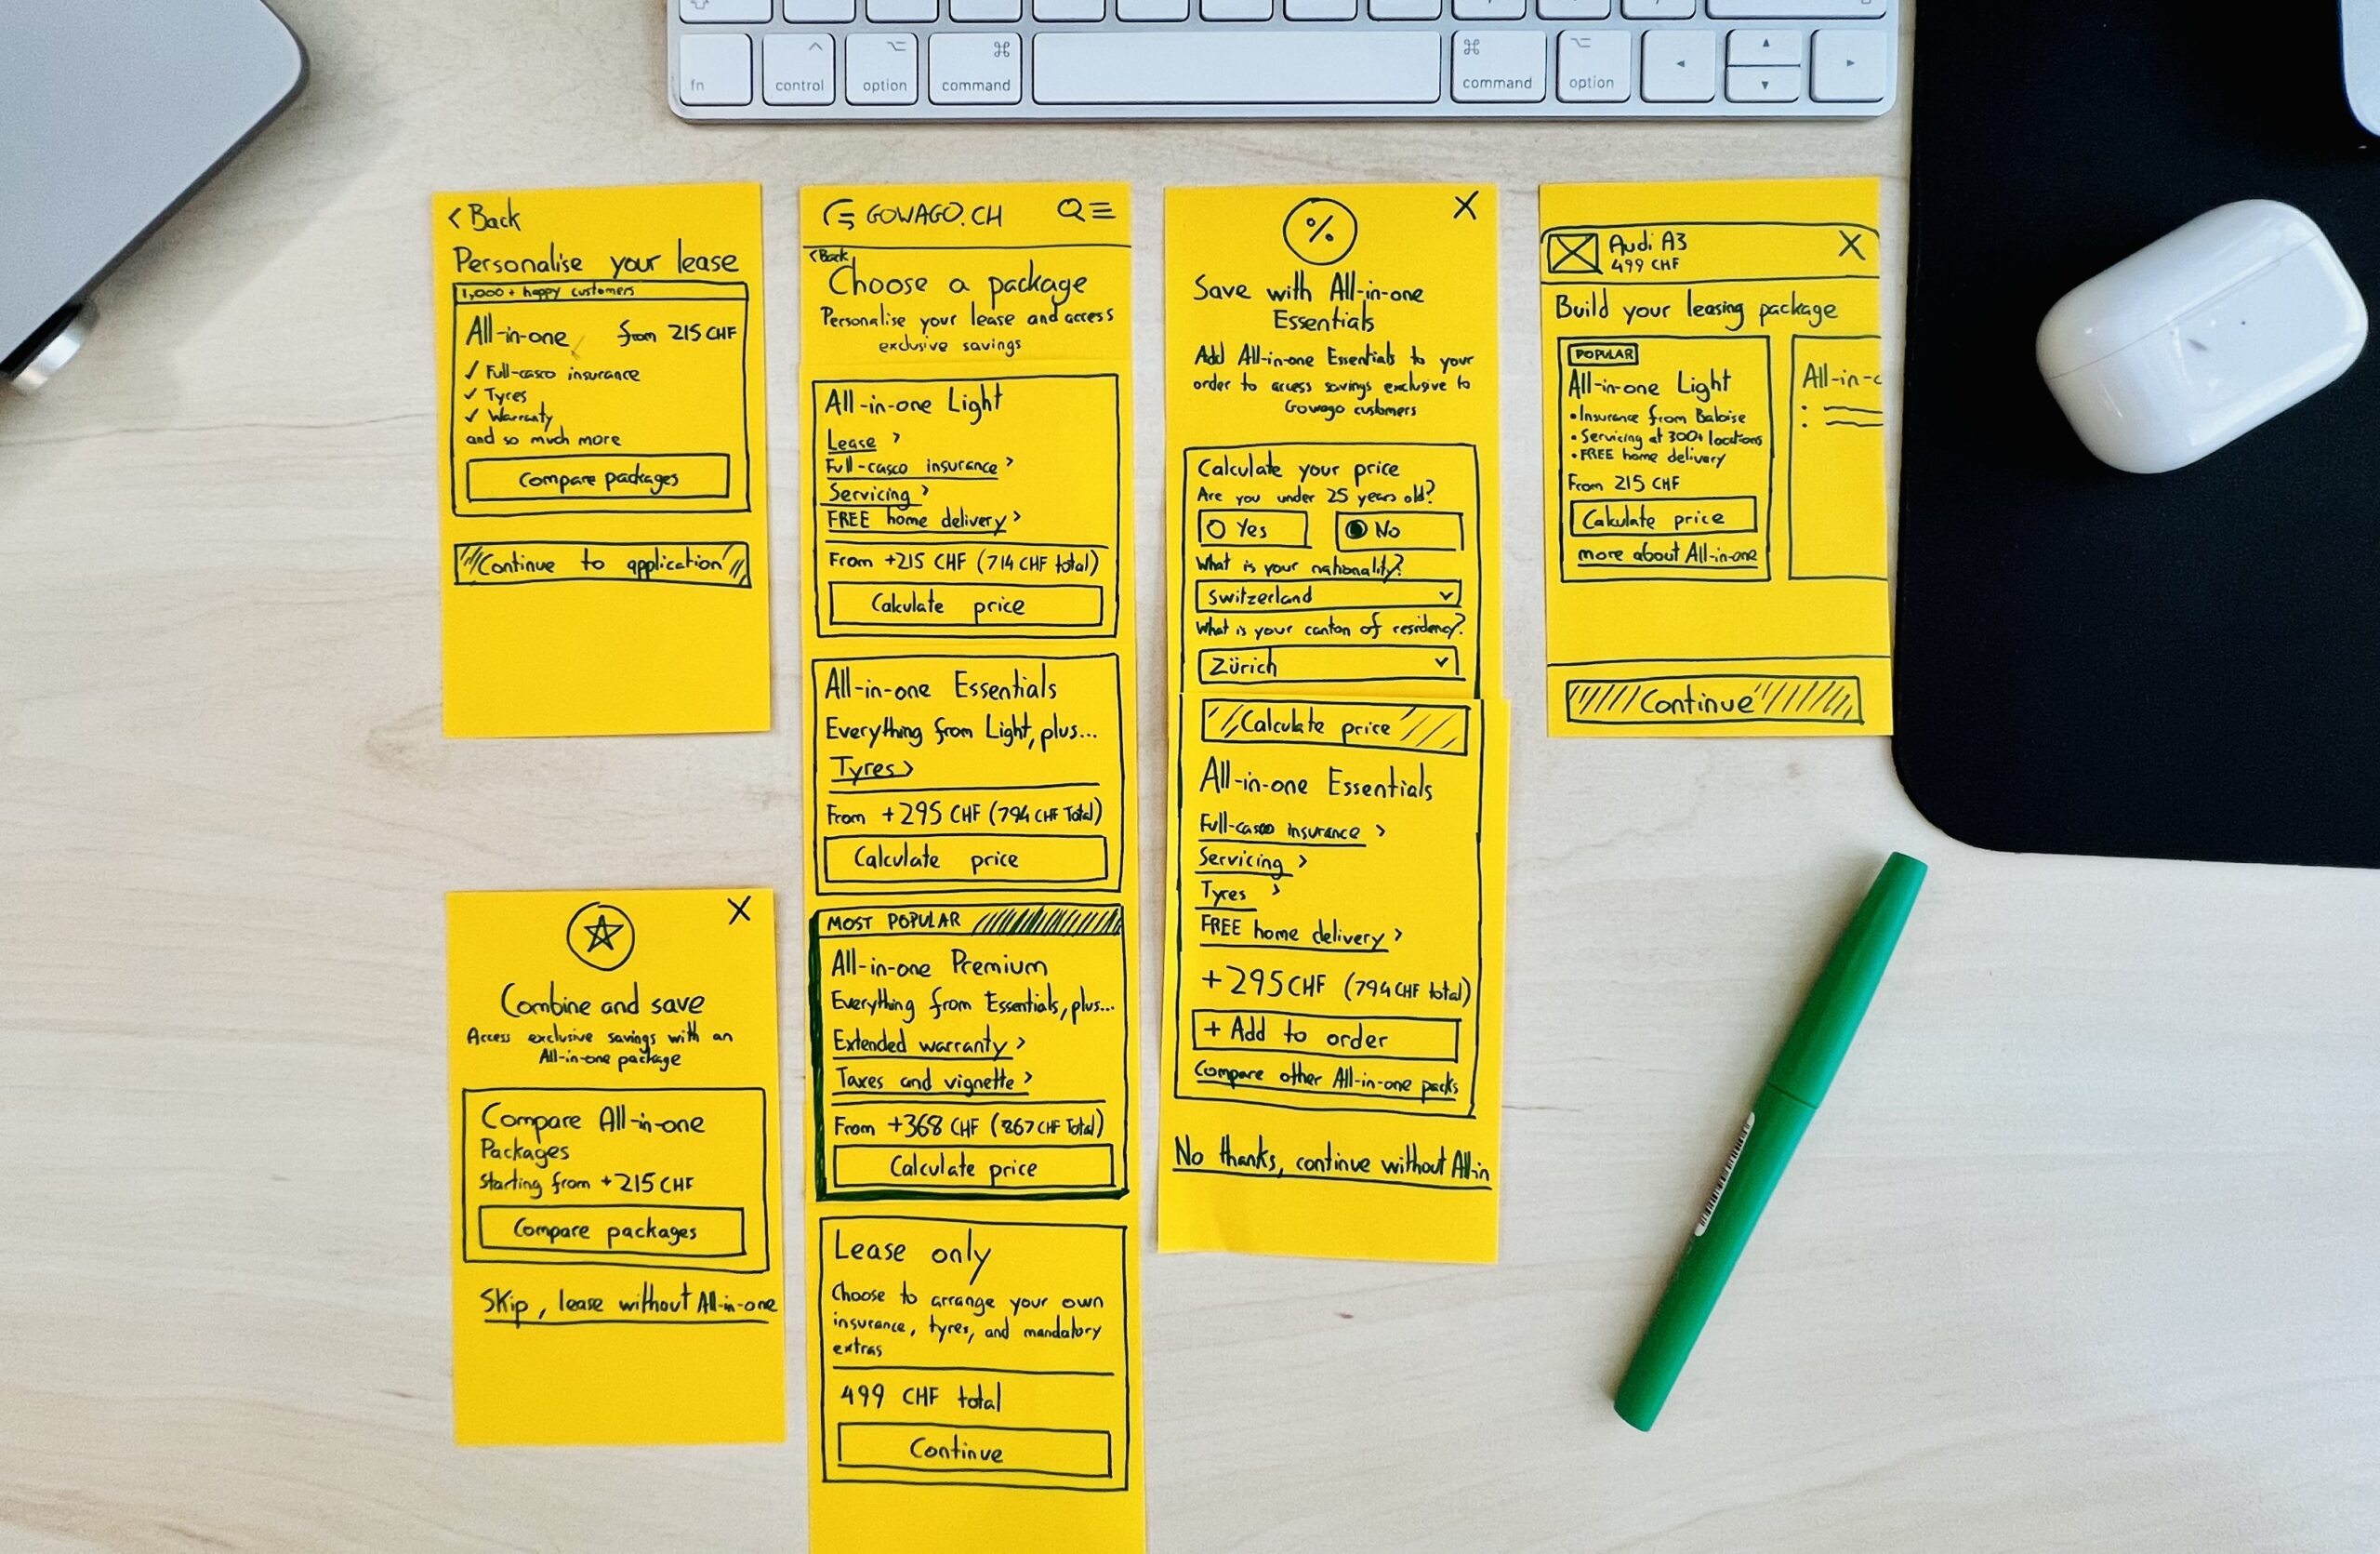 fn
control
option
command
command
option
< Back
Personalise your lease
1,000+ happy customers
All-in-one from 215 CHF
✓ Full-casco insurance
✓ Tyres
✓ Warranty
and so much more
Compare packages
Continue to application
Combine and save
Access exclusive savings with an
All-in-one package
Compare All-in-one
Packages
Starting from +215 CHF
Compare packages
Skip, lease without All-in-one
GOWAGO.CH
< Back
Choose a package
Personalise your lease and access
exclusive savings
All-in-one Light
Lease >
Full-casco insurance >
Servicing >
FREE home delivery >
From +215 CHF (714 CHF total)
Calculate price
All-in-one Essentials
Everything from Light, plus...
Tyres >
From +295 CHF (794 CHF Total)
Calculate price
MOST POPULAR
All-in-one Premium
Everything from Essentials, plus...
Extended warranty >
Taxes and vignette >
From +368 CHF (867 CHF Total)
Calculate price
Lease only
Choose to arrange your own
insurance, tyres, and mandatory
extras
499 CHF total
Continue
%
X
Save with All-in-one
Essentials
Add All-in-one Essentials to your
order to access savings exclusive to
Gowago customers
Calculate your price
Are you under 25 years old?
Yes No
What is your nationality?
Switzerland
What is your canton of residency?
Zürich
Calculate price
All-in-one Essentials
Full-casco insurance >
Servicing >
Tyres >
FREE home delivery >
+295 CHF (794 CHF total)
+ Add to order
Compare other All-in-one packs
No thanks, continue without All-in
Audi A3
499 CHF
X
Build your leasing package
POPULAR
All-in-one Light
• Insurance from Baloise
• Servicing at 300+ locations
• FREE home delivery
From 215 CHF
Calculate price
more about All-in-one
All-in-c
Continue